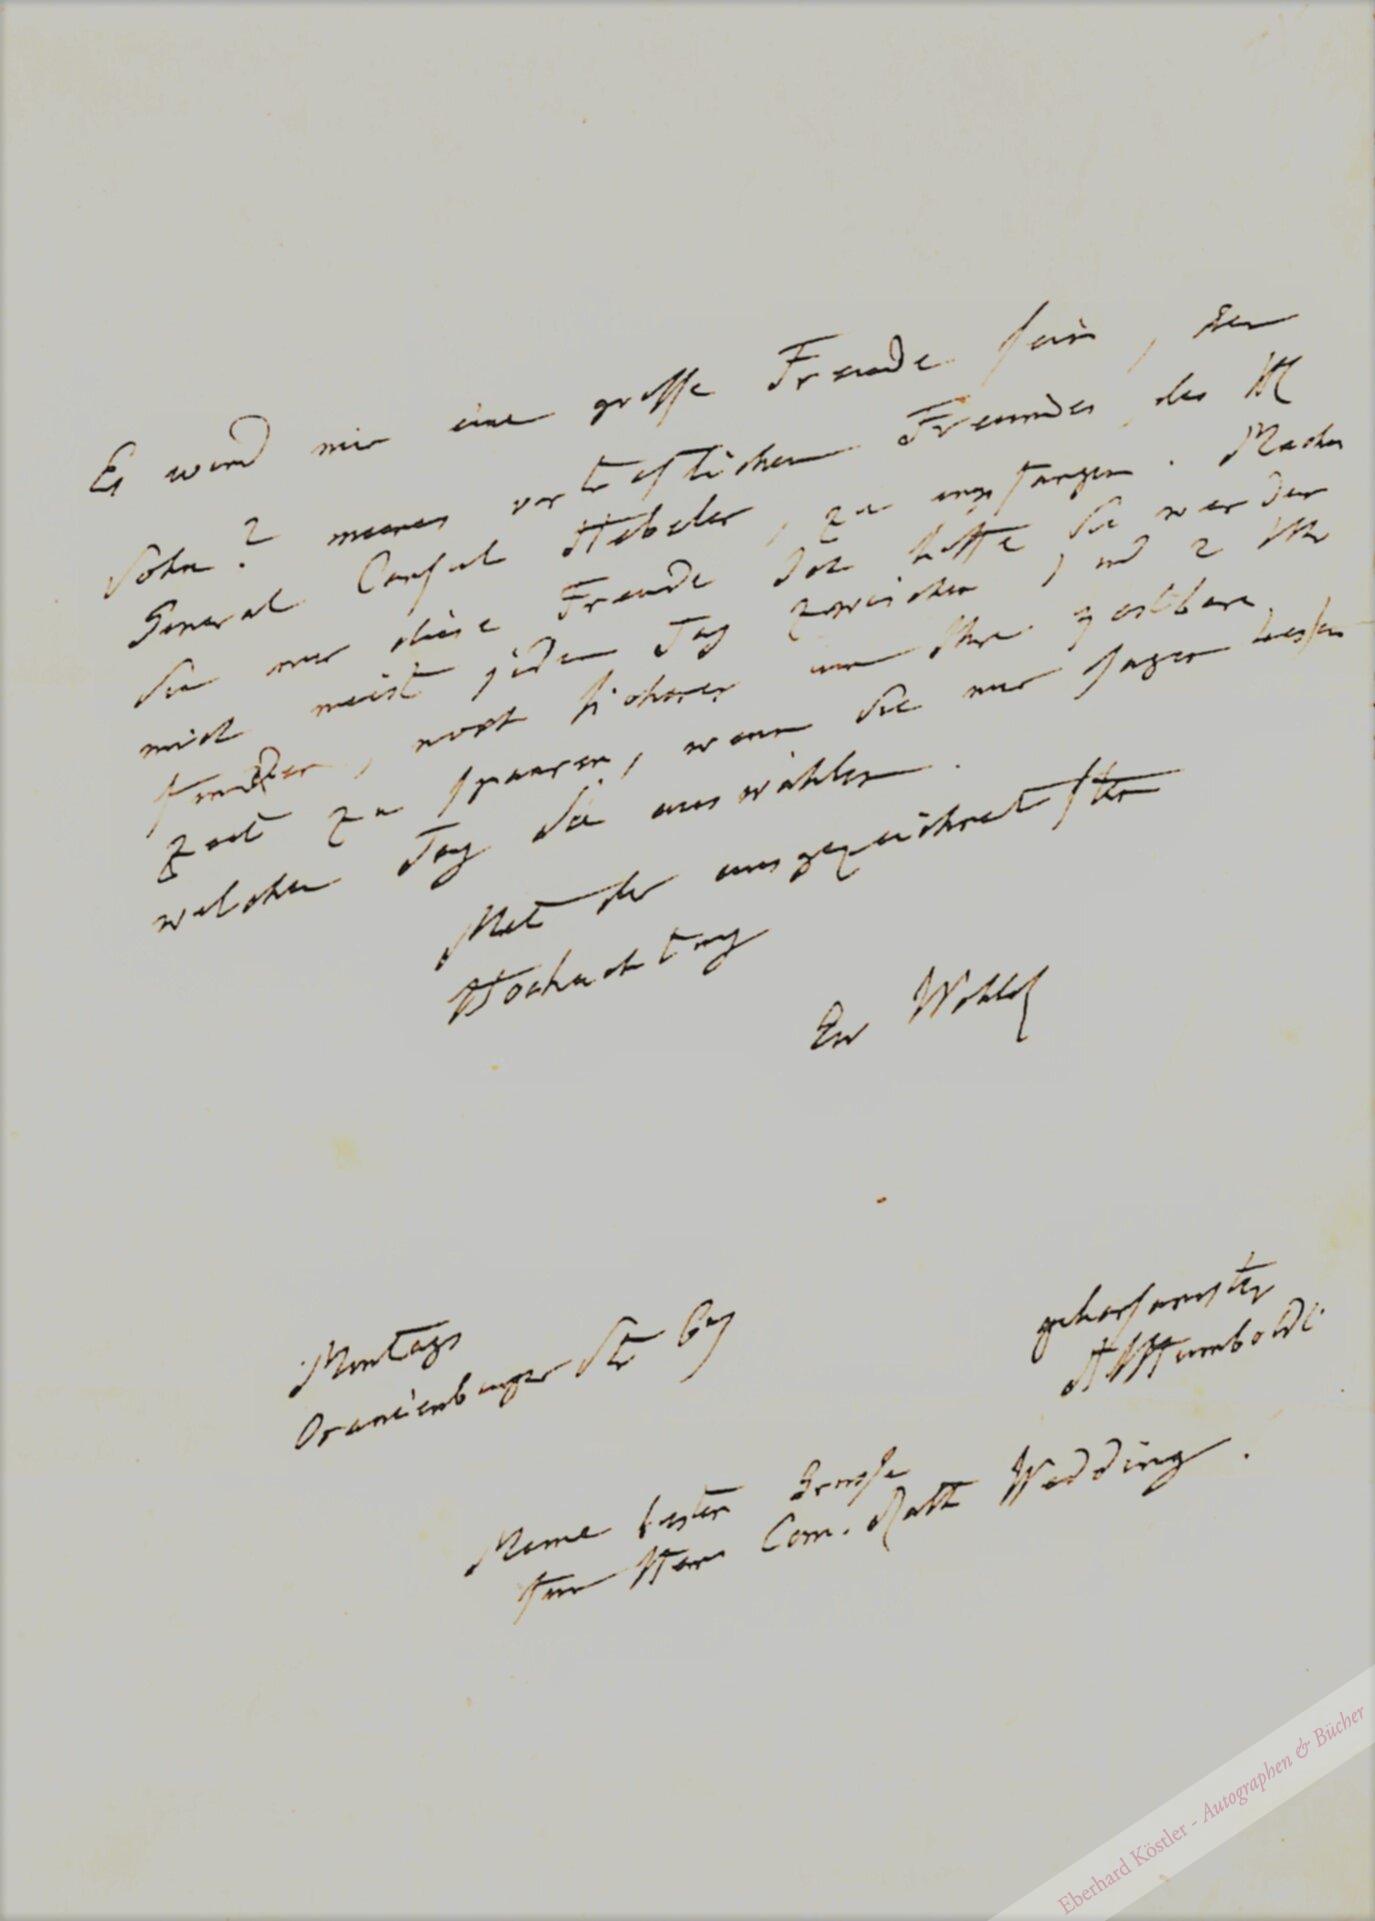 Es wird mir eine grosse Freude sein, den
Sohn? meines vortreflichen Freundes, des H
General Consul Hebeler, zu empfangen. Machen
Sie mir diese Freude Ich hoffe Sie werden
mich meist jeden Tag zwischen 1 und 2 Uhr
finden, noch sichrer um Ihre kostbare
Zeit zu sparen, wenn Sie mir sagen lassen
welchen Tag Sie auswählen.
Mit der ausgezeichnetsten
Hochachtung
Ew Wohlg
gehorsamster
AvHumboldt
Montags
Oranienburger Str 67
Meine besten Grüsse
für Herrn Com. Rath Wedding.
Eberhard Köstler - Autographen & Bücher